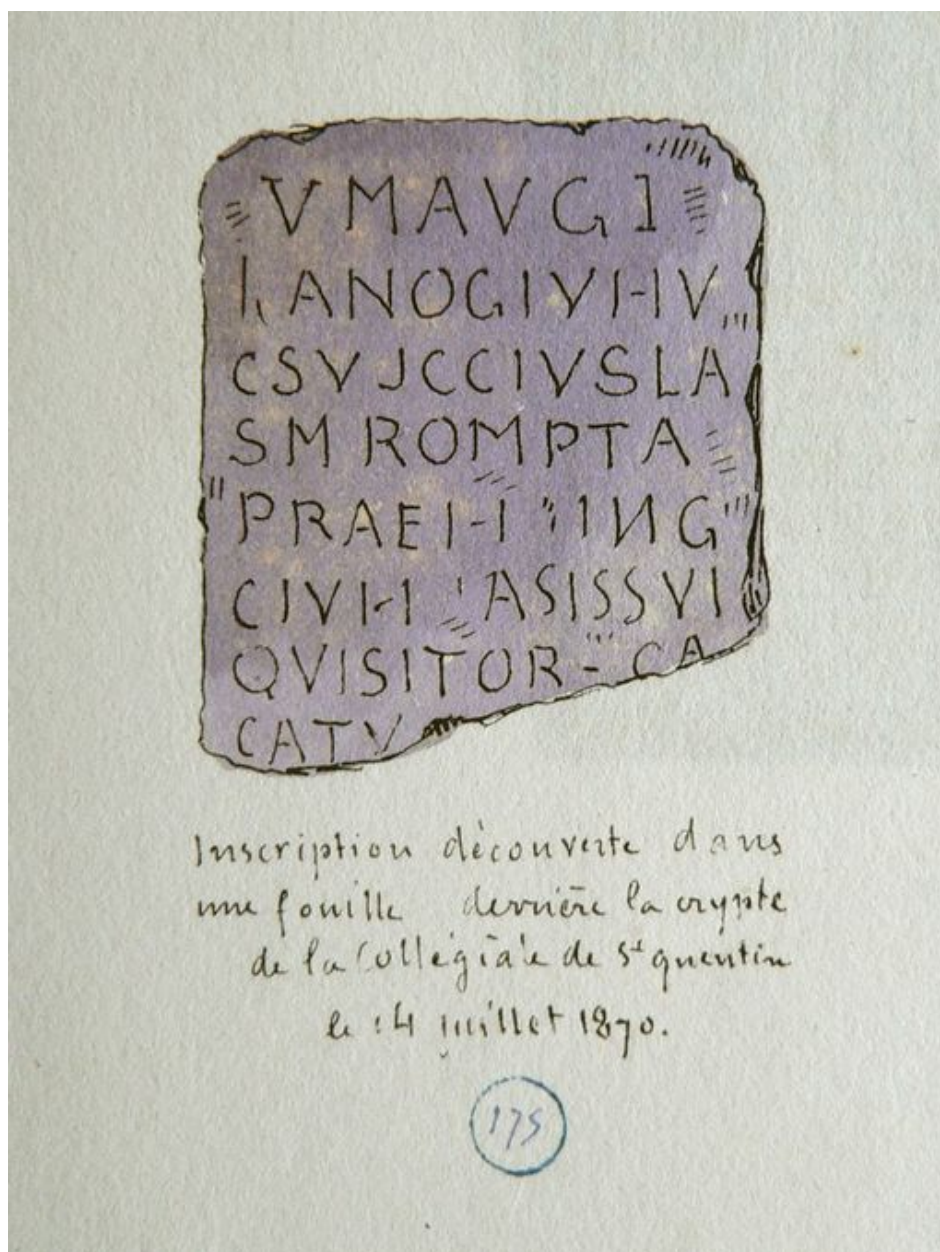 VMAVGI
LANOGIVHV
CSVJCCIVSLA
SM ROMPTA
PRAEHI ING
CIVHI ASISSVI
QVISITOR - CA
CATV
Inscription découverte dans
une fouille derrière la crypte
de la Collégiale de St quentin
le 14 juillet 1870.
175